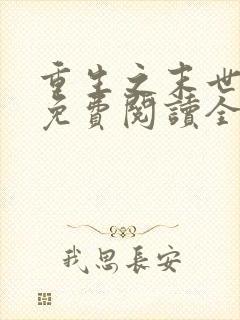 重生之末世
免費閱讀全
我思長安